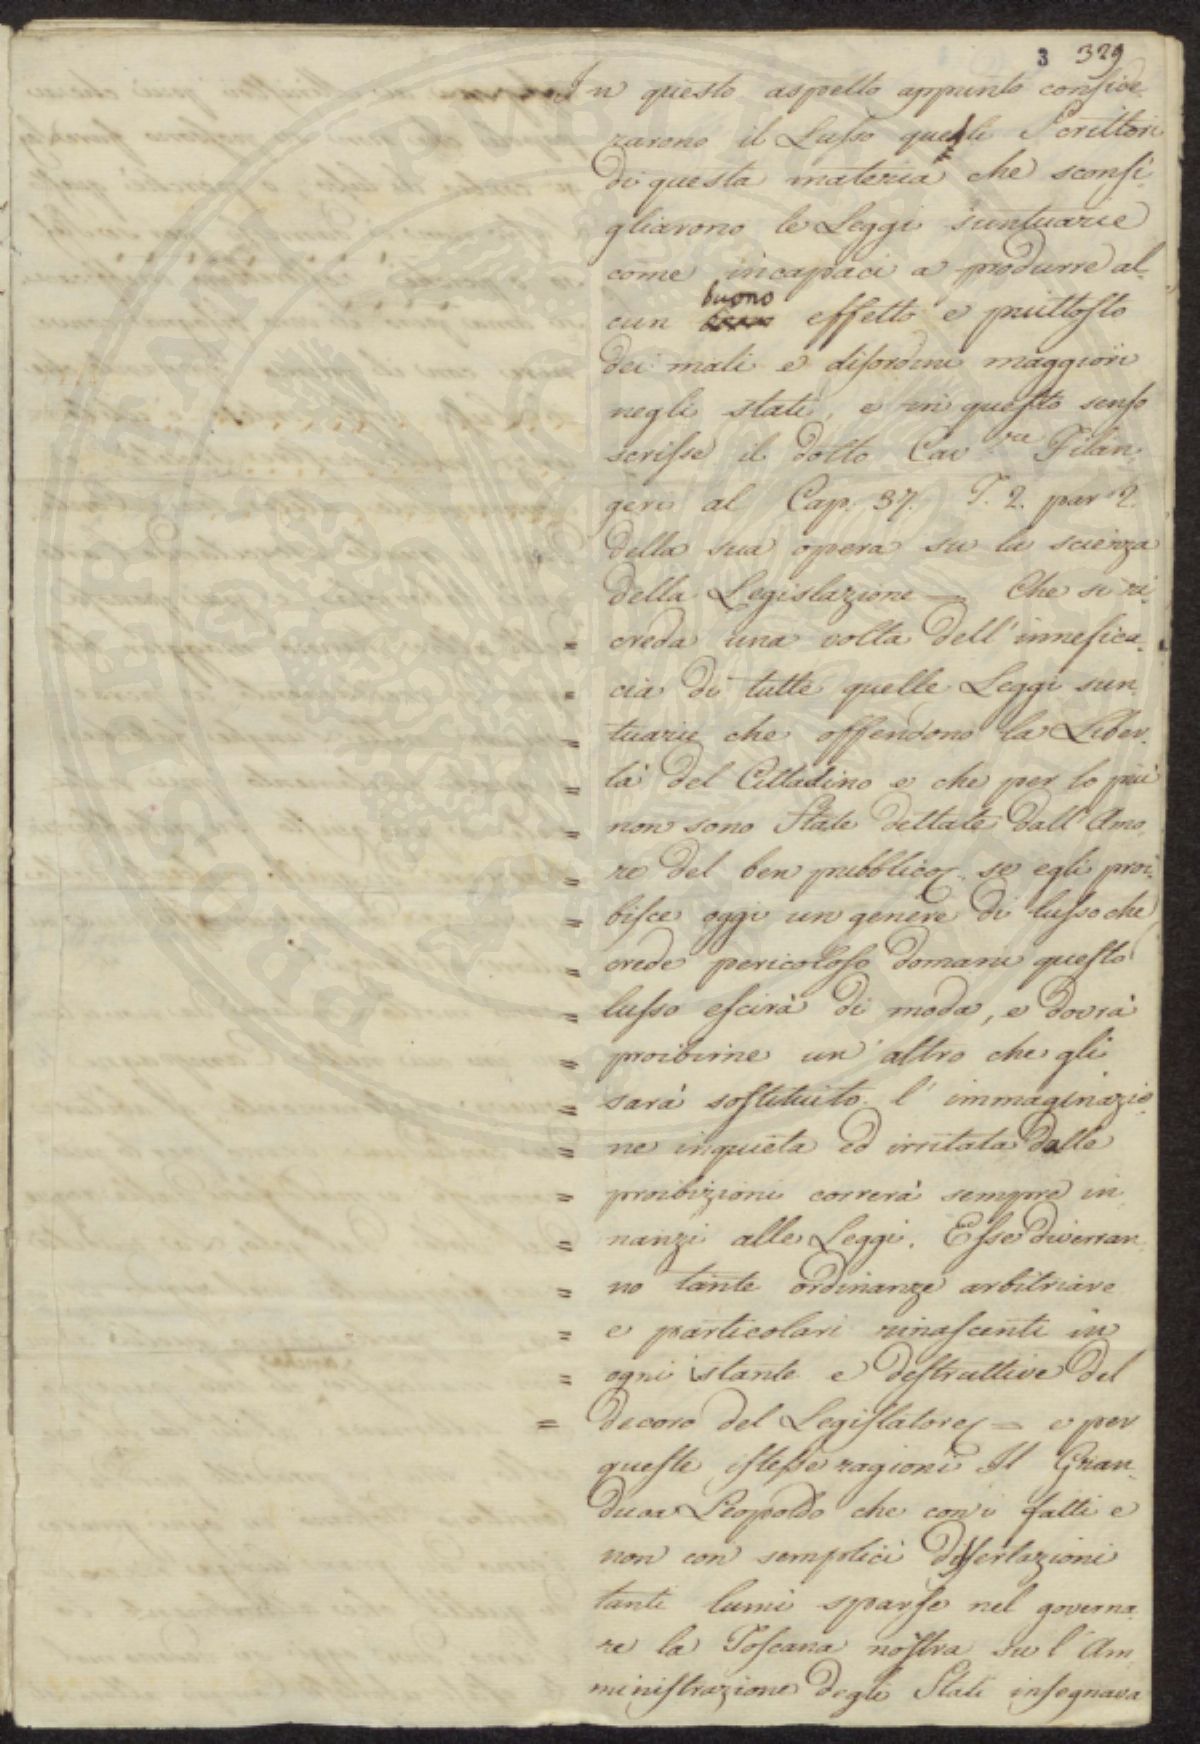 3 329
In questo aspetto appunto conside-
rarono il Lusso quelli Scrittori
di questa materia che sconsi-
gliarono le Leggi suntuarie
come incapaci a produrre al-
cun buono effetto e piuttosto
dei mali e disordini maggiori
negli stati, e in questo senso
scrisse il dotto Cav.re Filan-
geri al Cap. 37. T. 2. par 2.
della sua opera su la scienza
della Legislazione = Che si ri-
= creda una volta dell'innefica-
= cia di tutte quelle Leggi sun-
= tuarie che offendono la Liber-
= tà del Cittadino e che per lo più
= non sono State dettate dall'Amo-
= re del ben pubblico. se egli proi-
= bisce oggi un genere di lusso che
= crede pericoloso domani questo
= lusso escirà di moda, e dovrà
= proibirne un'altro che gli
= sarà sostituito. l'immaginazio-
= ne inquieta ed irritata dalle
= proibizioni correrà sempre in-
= nanzi alle Leggi. Esse diverran-
= no tante ordinanze arbitriare
= e particolari rinascenti in
= ogni istante e destruttive del
= decoro del Legislatore = e per
queste istesse ragioni Il Gran-
duca Leopoldo che con i fatti e
non con semplici dissertazioni
tanti lumi sparse nel governa-
re la Toscana nostra su l'Am-
ministrazione degli Stati insegnava